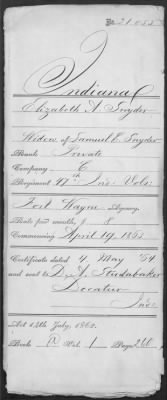 No 21.055
Indiana
Elizabeth A. Snyder
Widow of Samuel E. Snyder
Rank Private
Company E
Regiment 47th Ind: Vols:
Fort Wayne Agency.
Rate per month, $ 8
Commencing April 19, 1863
Certificate dated 4 May '64
and sent to D. Studabaker
Decatur
Ind:
Act 14th July, 1862.
Book Vol. 1 Page 260